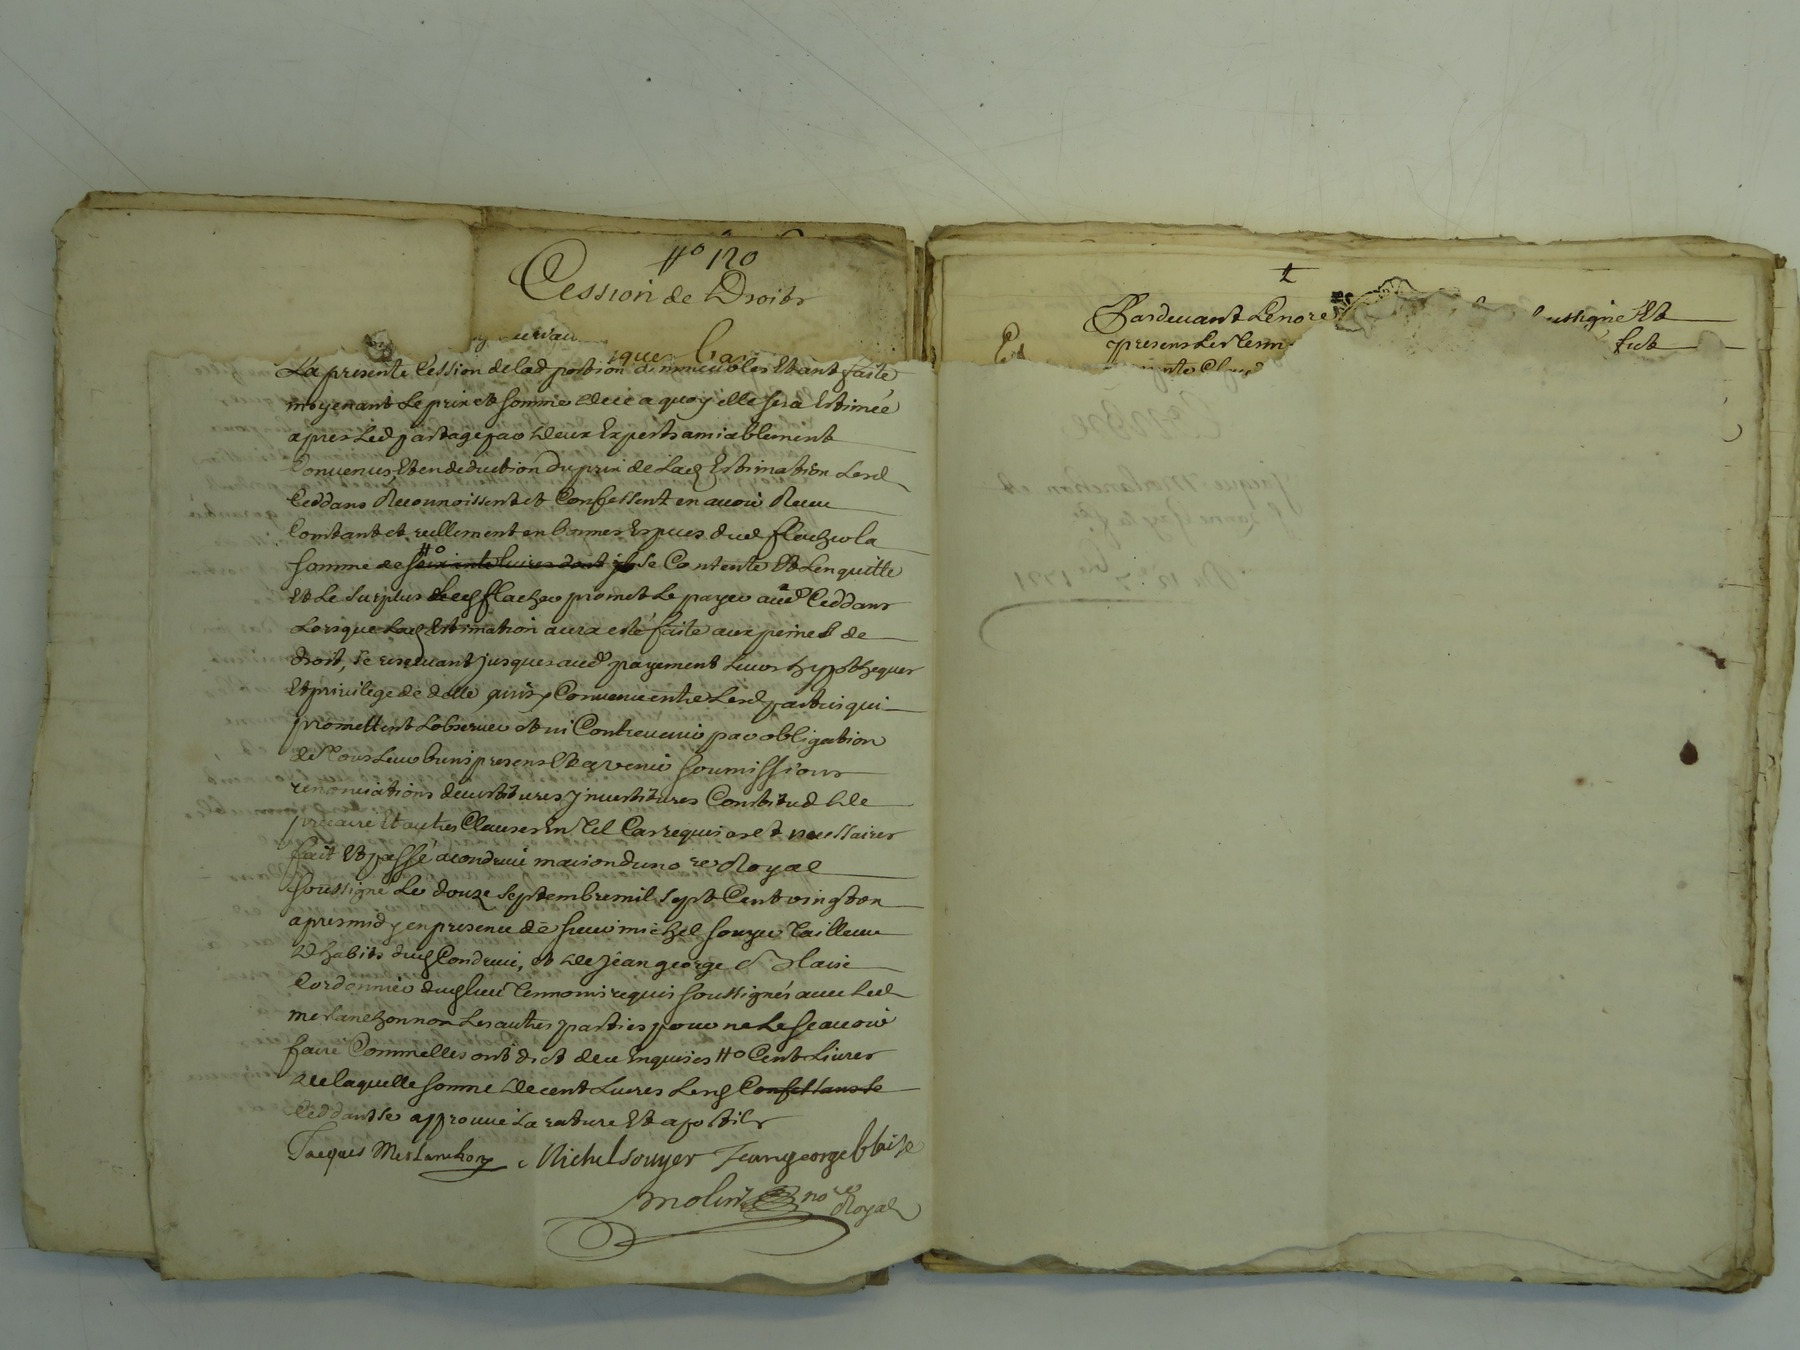 No 120
Cession de Droits
La presente Cession de lad portion dimmeubles Etant faite
moyenant Le prix et somme de ce a quoy elle sera Estimée
apres Led partage par deux Experts amiablement
Convenus Et en deduction du prix de Lad Estimation Lesd
Ceddans Reconnoissent et Confessent en avoir Receu
Contant et reellement en bonnes Especes dud flacher la
somme de soixante livres dont ils se Contente Et Lenquitte
Et Le surplus Led flacher promet Le payer aud Ceddans
Lorsque Lad Estimation aura esté faite aux peines de
droit, se reservant jusques aud payement Leurs hypotheques
Et privilege de datte ainsy Convenu entre Lesd parties qui
promettent Lobserver et ni Contrevenir par obligation
de Tous Leurs biens presens Et avenir soumissions
renonciations devestitures investitures Constitud de
precaire Et autres Clauses En Tel Cas requises et necessaires
fait Et passé a condrieu maison du no re Royal
soussigné Le douze septembre mil sept Cent vingt un
apres midy en presence de sieur michel souyer Tailleur
dhabits dud Condrieu, et de jean george Blaise
Cordonnier dud lieu Temoins requis soussignés avec Led
merlanchon non Les autres parties pour ne Le scavoir
faire Comme elles ont dict de ce Enquises No Cent Livres
de laquelle somme de cent Livres Lesd Confessans se
Ceddants approuvé La rature Et apostile
Jacques Merlanchon Michel souyer Jean george blaise
molin no re Royal
Pardevant Le no re soussigné Et
presens Les Tem